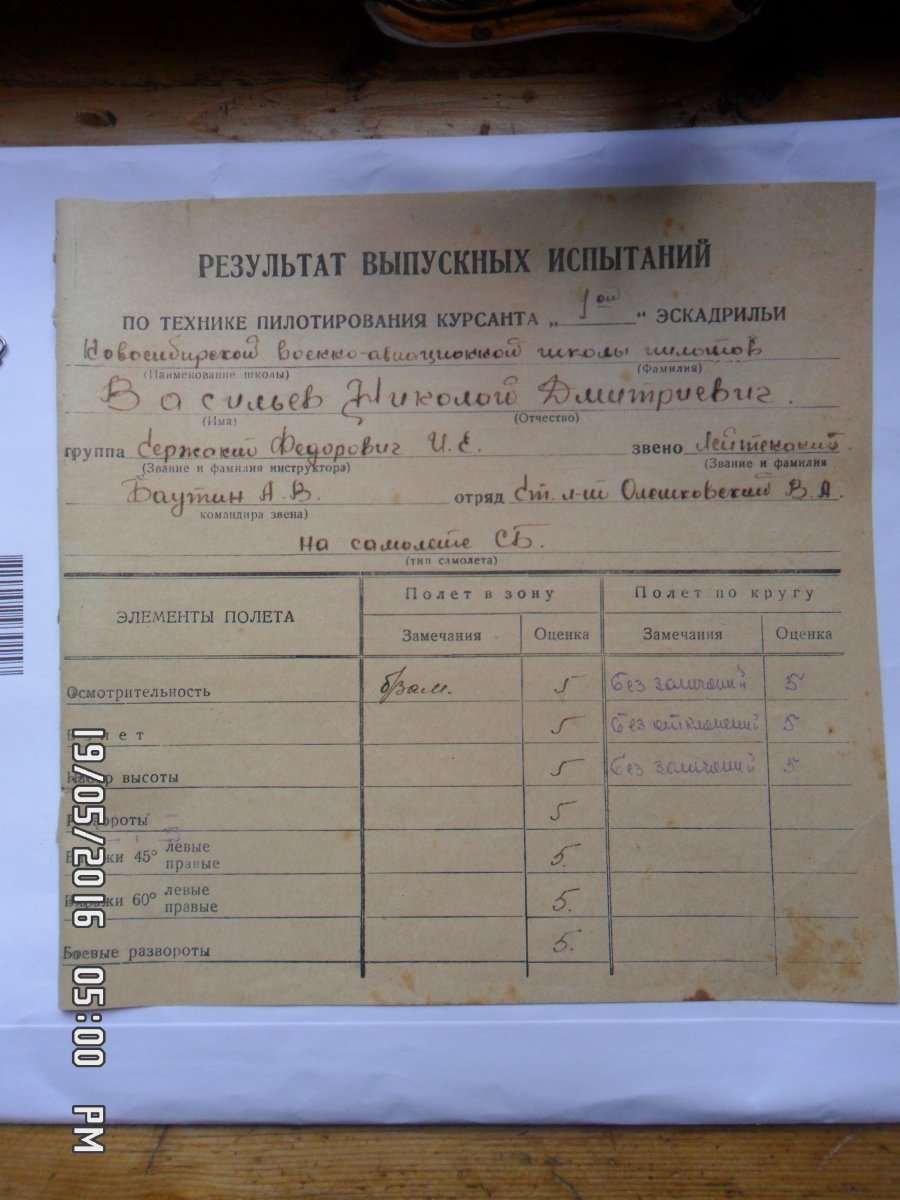 РЕЗУЛЬТАТ ВЫПУСКНЫХ ИСПЫТАНИЙ
ПО ТЕХНИКЕ ПИЛОТИРОВАНИЯ КУРСАНТА „1ой“ ЭСКАДРИЛЬИ
Новосибирской военно-авиационной школы пилотов
(Наименование школы) (Фамилия)
Васильев Николой Дмитриевич.
(Имя) (Отчество)
группа Сержант Федорович И.Е. звено Лейтенант
(Звание и фамилия инструктора) (Звание и фамилия
Баутин А.В. отряд Ст. л-т Олешковский В.А.
командира звена)
на самолете СБ.
(тип самолета)
ЭЛЕМЕНТЫ ПОЛЕТА Полет в зону Полет по кругу
Замечания Оценка Замечания Оценка
Осмотрительность б/зам. 5 без замечаний 5
Взлет 5 без отклонений 5
Набор высоты 5 без замечаний 5
Развороты 5
Виражи 45° левые правые 5.
Виражи 60° левые правые 5.
Боевые развороты 5.
19/05/2016 05:00 PM